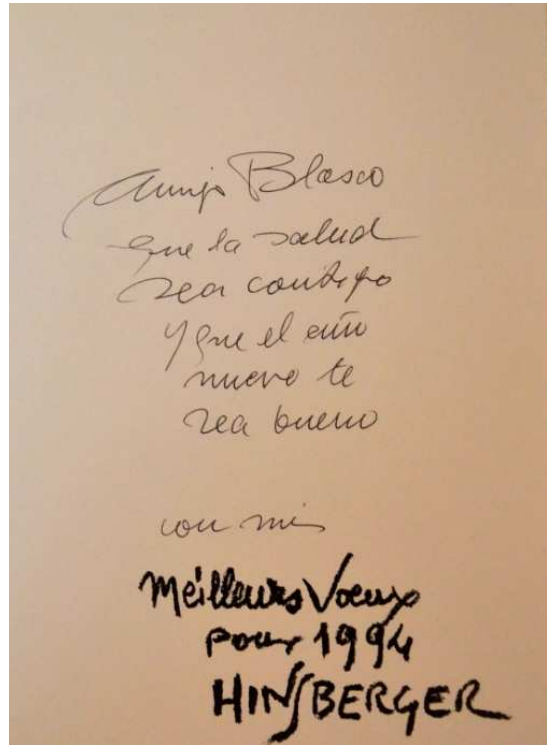 Amigo Blasco
que la salud
sea contigo
y que el año
nuevo te
sea bueno
con mis
Meilleurs Voeux
pour 1994
HINSBERGER